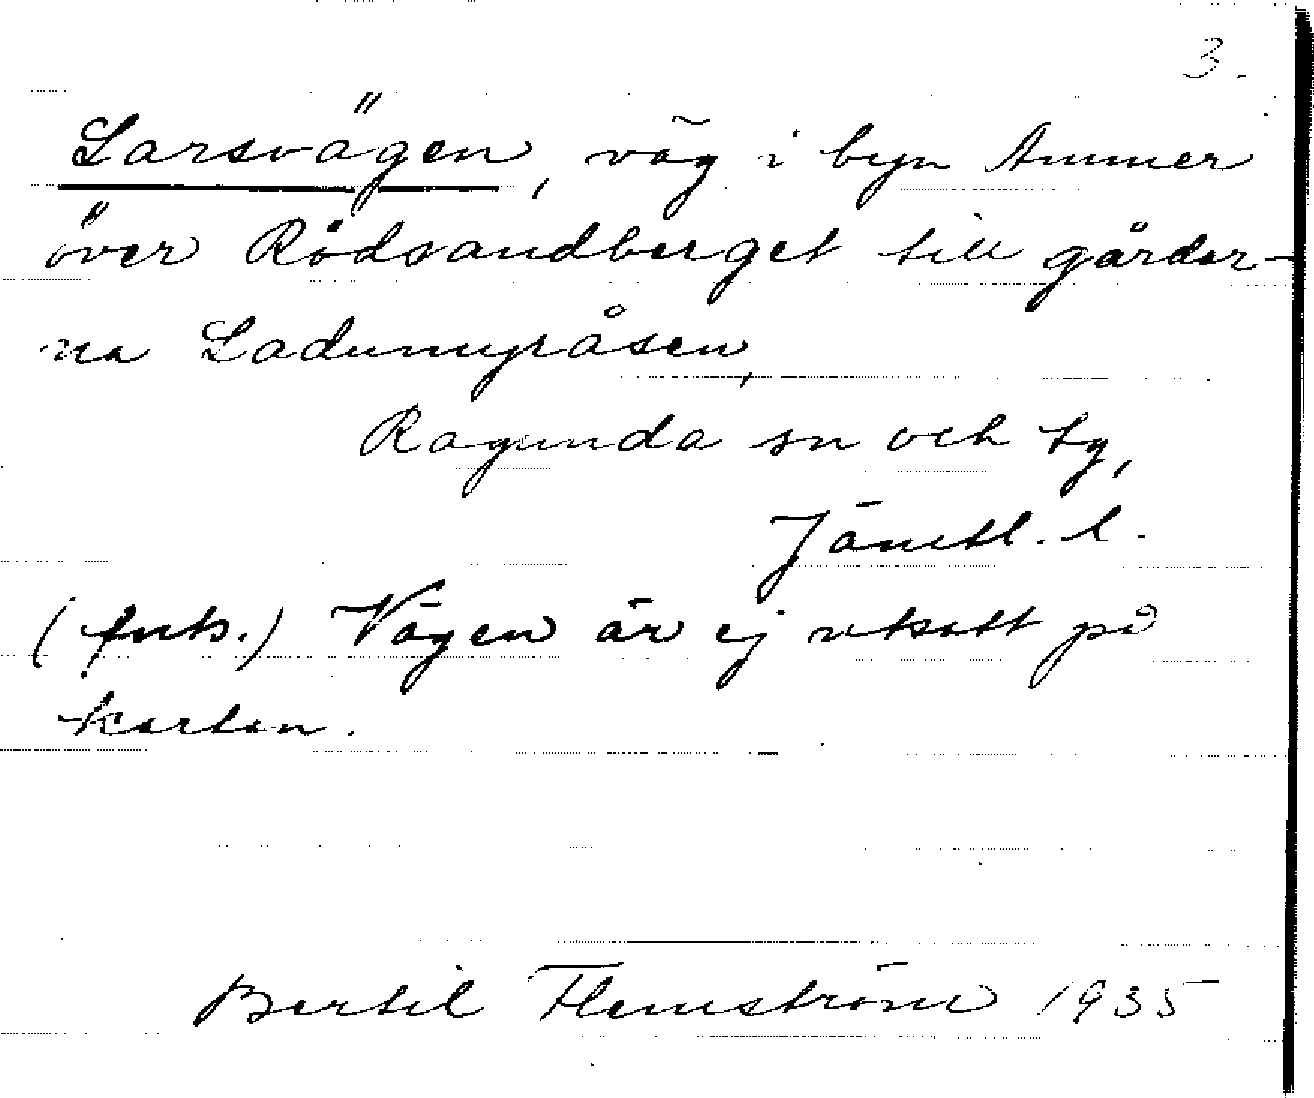 3.
Larsvägen, väg i byn Ammer
över Rödsandberget till gårdar-
na Ladumyråsen,
Ragunda sn och tg,
Jämtl. l.
(fnts.) Vägen är ej utsatt på
kartan.
Bertil Flemström 1935